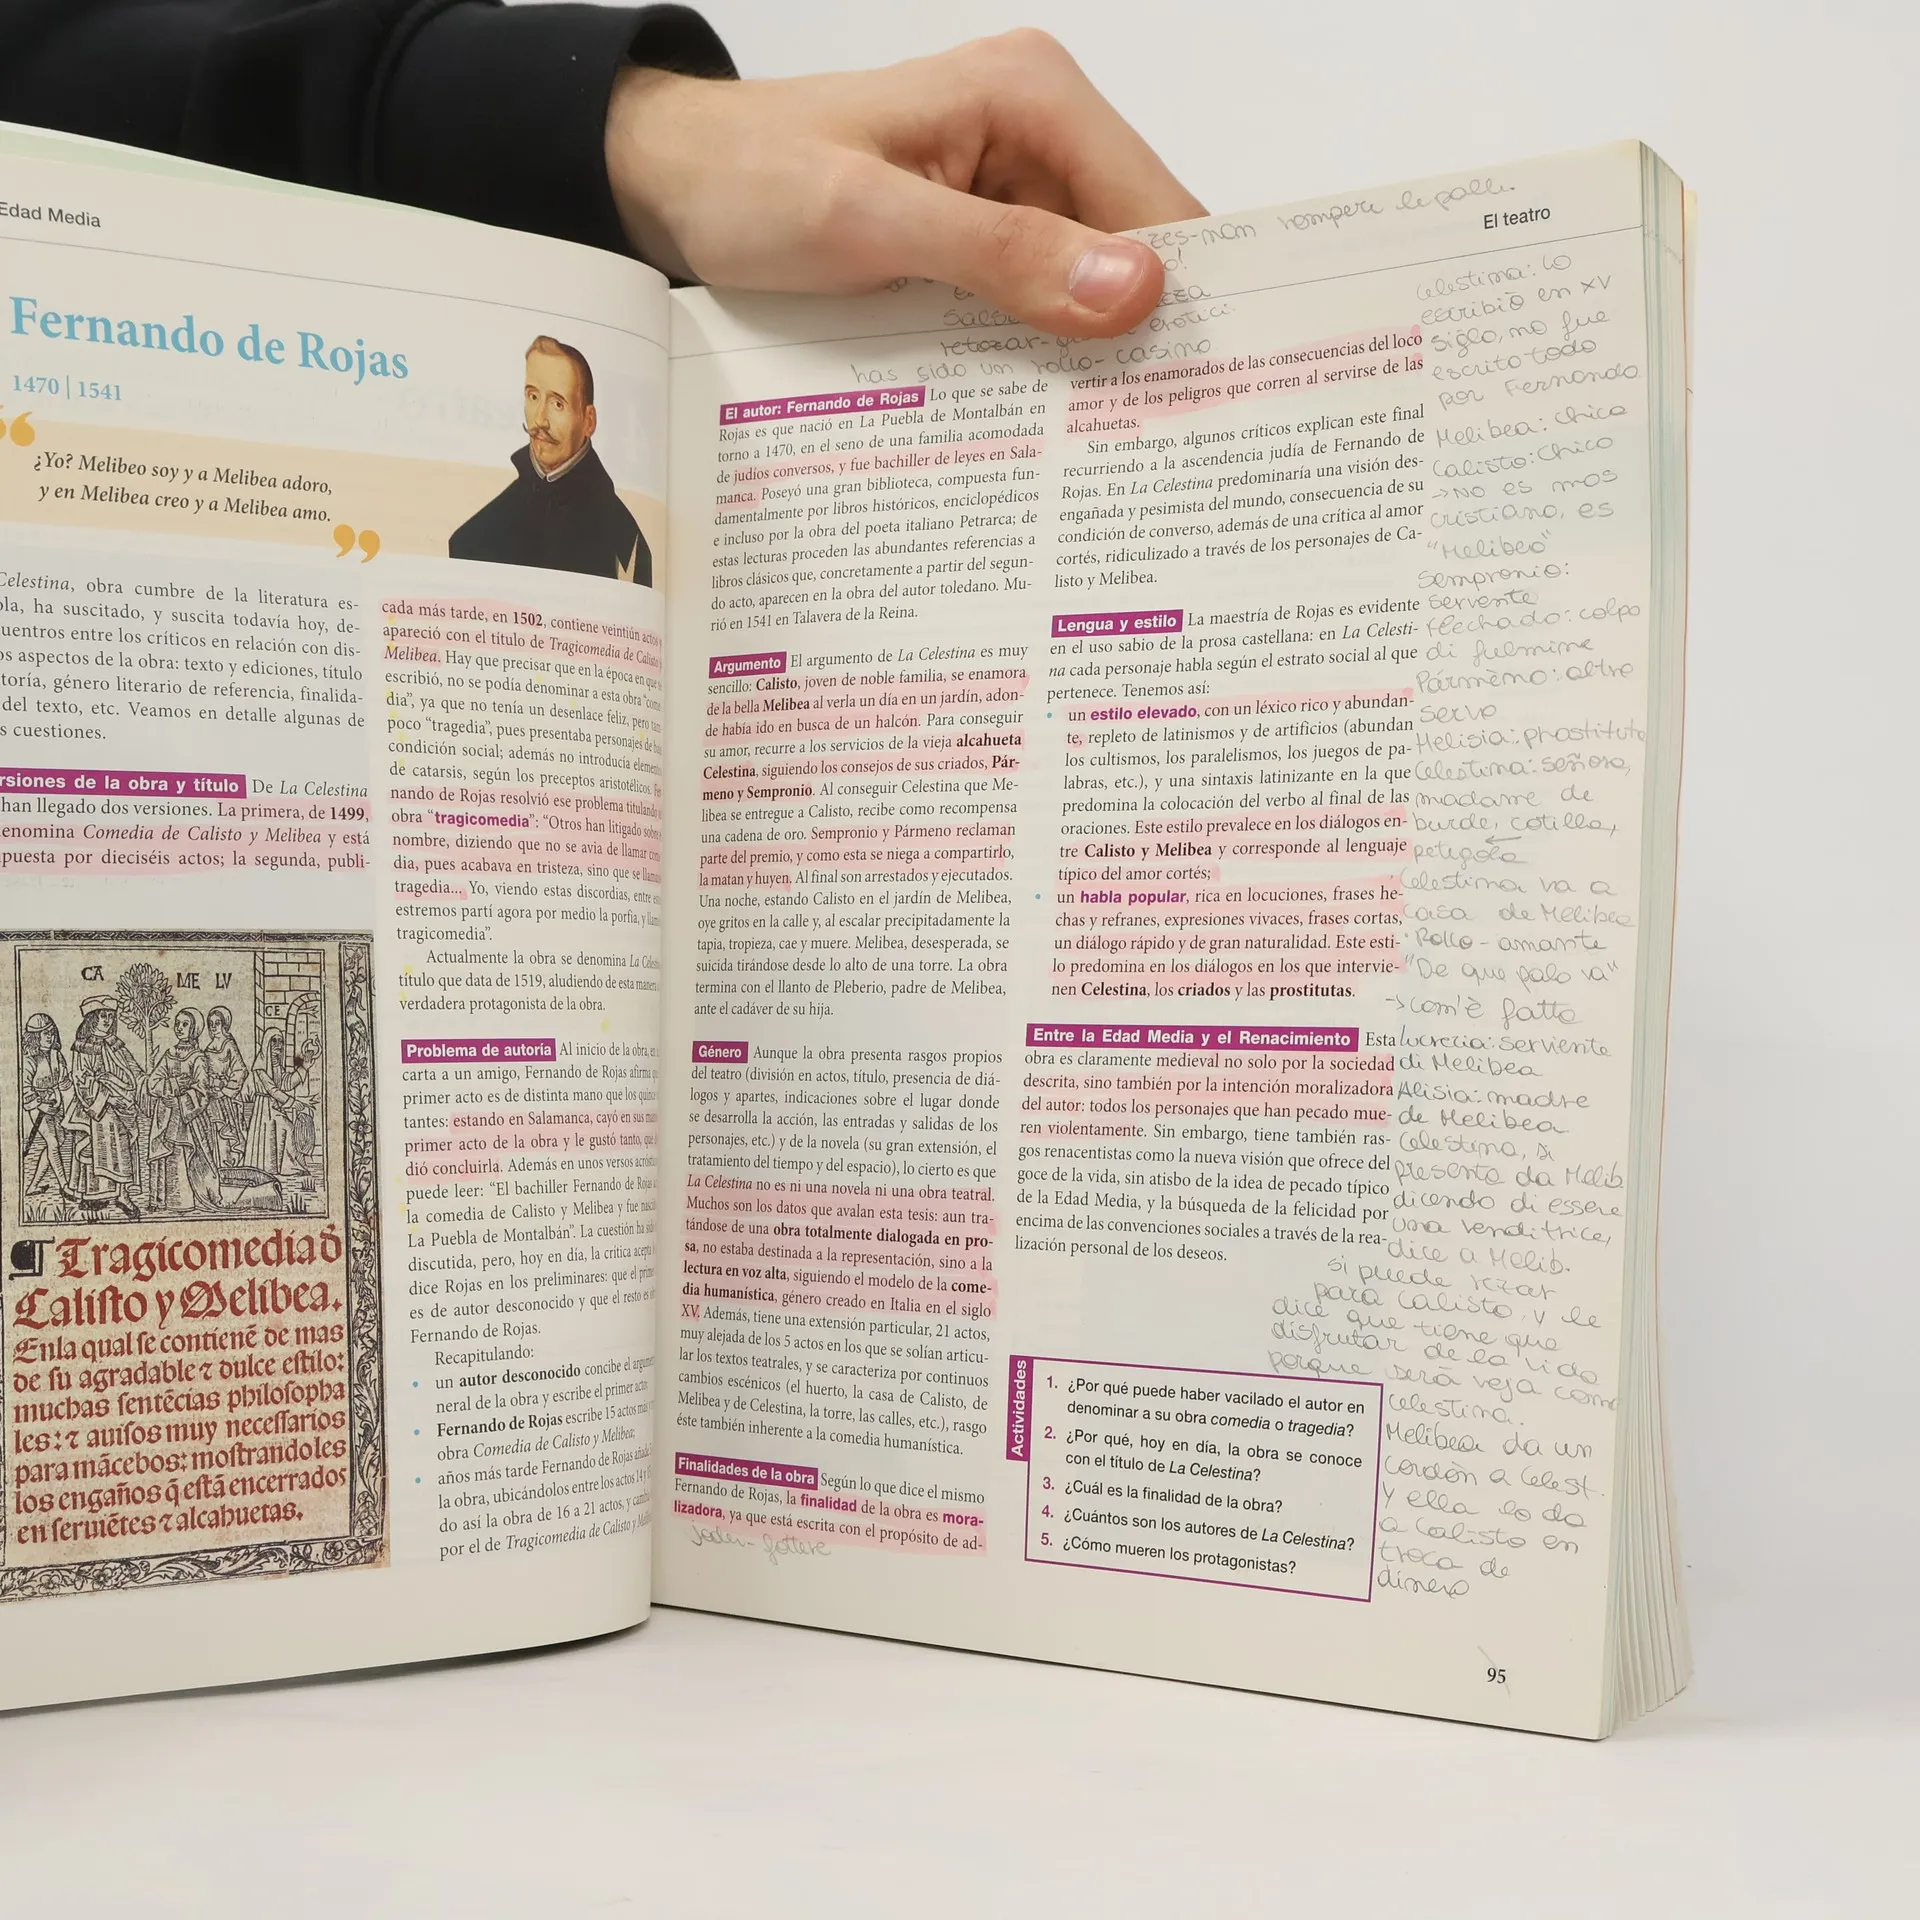 Edad Media
Fernando de Rojas
1470 | 1541
“
¿Yo? Melibeo soy y a Melibea adoro,
y en Melibea creo y a Melibea amo.
”
Celestina, obra cumbre de la literatura es-
ola, ha suscitado, y suscita todavía hoy, de-
uentros entre los críticos en relación con dis-
os aspectos de la obra: texto y ediciones, título
toría, género literario de referencia, finalida-
del texto, etc. Veamos en detalle algunas de
s cuestiones.
rsiones de la obra y título De La Celestina
han llegado dos versiones. La primera, de 1499,
enomina Comedia de Calisto y Melibea y está
puesta por dieciséis actos; la segunda, publi-
CA ME LV
CE
Tragicomedia ď
Calisto y Melibea.
Enla qual se contienē de mas
de su agradable ⁊ dulce estilo:
muchas sentēcias philosopha
les: ⁊ auisos muy necessarios
para mācebos: mostrandoles
los engaños q̄ estā encerrados
en seruiētes ⁊ alcahuetas.
cada más tarde, en 1502, contiene veintiún actos
apareció con el título de Tragicomedia de Calisto
Melibea. Hay que precisar que en la época en que
escribió, no se podía denominar a esta obra “come
dia”, ya que no tenía un desenlace feliz, pero tam
poco “tragedia”, pues presentaba personajes de
condición social; además no introducía
de catarsis, según los preceptos aristotélicos.
nando de Rojas resolvió ese problema titulando
obra “tragicomedia”: “Otros han litigado sobre
nombre, diziendo que no se avia de llamar
dia, pues acabava en tristeza, sino que se
tragedia... Yo, viendo estas discordias, entre
estremos partí agora por medio la porfía, y
tragicomedia”.
Actualmente la obra se denomina La
título que data de 1519, aludiendo de esta manera
verdadera protagonista de la obra.
Problema de autoría Al inicio de la obra,
carta a un amigo, Fernando de Rojas afirma
primer acto es de distinta mano que los
tantes: estando en Salamanca, cayó en sus
primer acto de la obra y le gustó tanto, que
dió concluirla. Además en unos versos
puede leer: “El bachiller Fernando de Rojas
la comedia de Calisto y Melibea y fue
La Puebla de Montalbán”. La cuestión ha
discutida, pero, hoy en día, la crítica acepta
dice Rojas en los preliminares: que el
es de autor desconocido y que el resto es
Fernando de Rojas.
Recapitulando:
• un autor desconocido concibe el
neral de la obra y escribe el primer acto
• Fernando de Rojas escribe 15 actos más
obra Comedia de Calisto y Melibea;
• años más tarde Fernando de Rojas
la obra, ubicándolos entre los actos 14
do así la obra de 16 a 21 actos, y
por el de Tragicomedia de Calisto y
El teatro
rompere le palle
erotici
retozar-
has sido un rollo- casino
El autor: Fernando de Rojas Lo que se sabe de
Rojas es que nació en La Puebla de Montalbán en
torno a 1470, en el seno de una familia acomodada
de judíos conversos, y fue bachiller de leyes en Sala-
manca. Poseyó una gran biblioteca, compuesta fun-
damentalmente por libros históricos, enciclopédicos
e incluso por la obra del poeta italiano Petrarca; de
estas lecturas proceden las abundantes referencias a
libros clásicos que, concretamente a partir del segun-
do acto, aparecen en la obra del autor toledano. Mu-
rió en 1541 en Talavera de la Reina.
Argumento El argumento de La Celestina es muy
sencillo: Calisto, joven de noble familia, se enamora
de la bella Melibea al verla un día en un jardín, adon-
de había ido en busca de un halcón. Para conseguir
su amor, recurre a los servicios de la vieja alcahueta
Celestina, siguiendo los consejos de sus criados, Pár-
meno y Sempronio. Al conseguir Celestina que Me-
libea se entregue a Calisto, recibe como recompensa
una cadena de oro. Sempronio y Pármeno reclaman
parte del premio, y como esta se niega a compartirlo,
la matan y huyen. Al final son arrestados y ejecutados.
Una noche, estando Calisto en el jardín de Melibea,
oye gritos en la calle y, al escalar precipitadamente la
tapia, tropieza, cae y muere. Melibea, desesperada, se
suicida tirándose desde lo alto de una torre. La obra
termina con el llanto de Pleberio, padre de Melibea,
ante el cadáver de su hija.
Género Aunque la obra presenta rasgos propios
del teatro (división en actos, título, presencia de diá-
logos y apartes, indicaciones sobre el lugar donde
se desarrolla la acción, las entradas y salidas de los
personajes, etc.) y de la novela (su gran extensión, el
tratamiento del tiempo y del espacio), lo cierto es que
La Celestina no es ni una novela ni una obra teatral.
Muchos son los datos que avalan esta tesis: aun tra-
tándose de una obra totalmente dialogada en pro-
sa, no estaba destinada a la representación, sino a la
lectura en voz alta, siguiendo el modelo de la come-
dia humanística, género creado en Italia en el siglo
XV. Además, tiene una extensión particular, 21 actos,
muy alejada de los 5 actos en los que se solían articu-
lar los textos teatrales, y se caracteriza por continuos
cambios escénicos (el huerto, la casa de Calisto, de
Melibea y de Celestina, la torre, las calles, etc.), rasgo
éste también inherente a la comedia humanística.
Finalidades de la obra Según lo que dice el mismo
Fernando de Rojas, la finalidad de la obra es mora-
lizadora, ya que está escrita con el propósito de ad-
vertir a los enamorados de las consecuencias del loco
amor y de los peligros que corren al servirse de las
alcahuetas.
Sin embargo, algunos críticos explican este final
recurriendo a la ascendencia judía de Fernando de
Rojas. En La Celestina predominaría una visión des-
engañada y pesimista del mundo, consecuencia de su
condición de converso, además de una crítica al amor
cortés, ridiculizado a través de los personajes de Ca-
listo y Melibea.
Lengua y estilo La maestría de Rojas es evidente
en el uso sabio de la prosa castellana: en La Celesti-
na cada personaje habla según el estrato social al que
pertenece. Tenemos así:
• un estilo elevado, con un léxico rico y abundan-
te, repleto de latinismos y de artificios (abundan
los cultismos, los paralelismos, los juegos de pa-
labras, etc.), y una sintaxis latinizante en la que
predomina la colocación del verbo al final de las
oraciones. Este estilo prevalece en los diálogos en-
tre Calisto y Melibea y corresponde al lenguaje
típico del amor cortés;
• un habla popular, rica en locuciones, frases he-
chas y refranes, expresiones vivaces, frases cortas,
un diálogo rápido y de gran naturalidad. Este esti-
lo predomina en los diálogos en los que intervie-
nen Celestina, los criados y las prostitutas.
Entre la Edad Media y el Renacimiento Esta
obra es claramente medieval no solo por la sociedad
descrita, sino también por la intención moralizadora
del autor: todos los personajes que han pecado mue-
ren violentamente. Sin embargo, tiene también ras-
gos renacentistas como la nueva visión que ofrece del
goce de la vida, sin atisbo de la idea de pecado típico
de la Edad Media, y la búsqueda de la felicidad por
encima de las convenciones sociales a través de la rea-
lización personal de los deseos.
Actividades
1. ¿Por qué puede haber vacilado el autor en
denominar a su obra comedia o tragedia?
2. ¿Por qué, hoy en día, la obra se conoce
con el título de La Celestina?
3. ¿Cuál es la finalidad de la obra?
4. ¿Cuántos son los autores de La Celestina?
5. ¿Cómo mueren los protagonistas?
Celestina: lo
escribiò en XV
siglo, no fue
escrito todo
por Fernando
Melibea: chica
Calisto: chico
→ No es mas
cristiano, es
“Melibeo”
Sempronio:
servente
flechado: colpo
di fulmine
Pármeno: altro
servo
Helisia: prostituta
Celestina: señora,
madame de
burde, cotilla,
petegola
Celestina va a
casa de Melibea
Rollo - amante
“De que palo va”
→ com'è fatto
Lucrecia: serviente
di Melibea
Alisia: madre
de Melibea
Celestina, si
presenta da Melib.
dicendo di essere
una venditrice,
dice a Melib.
si puede rezar
para Calisto, y le
dice que tiene que
disfrutar de la vida
porque será veja como
Celestina.
Melibea da un
cordòn a Celest.
Y ella lo da
a Calisto en
troca de
dinero
95